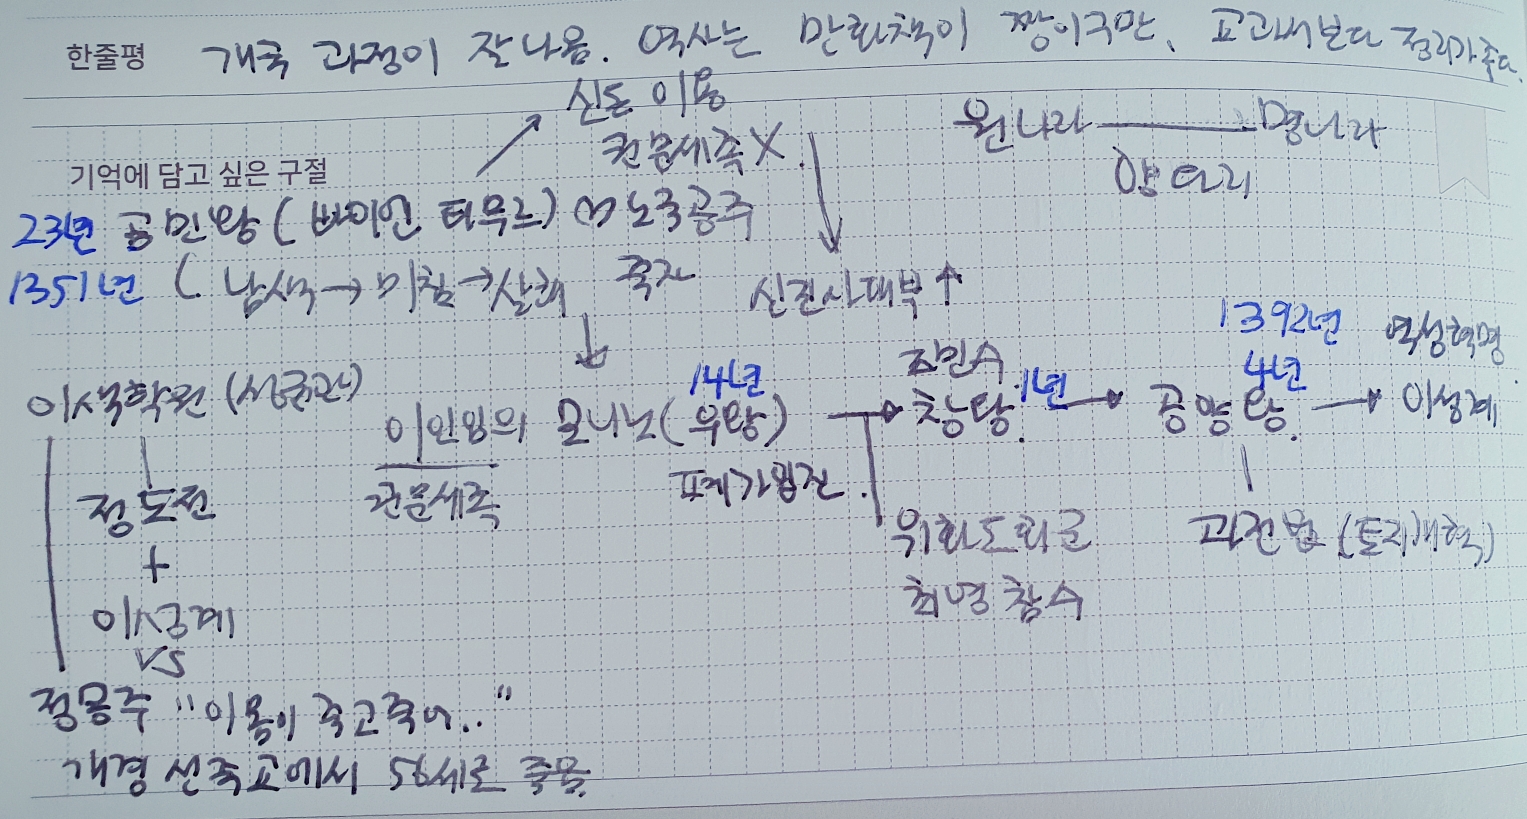 한줄평 개국 과정이 잘 나옴. 역사는 만화책이 짱이구만. 교과서보다 정리가 좋다.
신돈 이용
권문세족 X
원나라 명나라
양다리
기억에 담고 싶은 구절
23년 공민왕 (바이얀 티무르) ♡ 노국공주
1351년 ( 남색 → 미침 → 살해 죽자
신진사대부 ↑
1392년 역성혁명
이색학원 (성균관)
이인임의 모니노 (우왕) 14년 → 조민수 창왕 1년 → 공양왕 4년 → 이성계
권문세족
폐가입진
정도전
위화도회군
과전법 (토지개혁)
+
최영 참수
이성계
VS
정몽주 "이몸이 죽고죽어.."
개경 선죽교에서 56세로 죽음